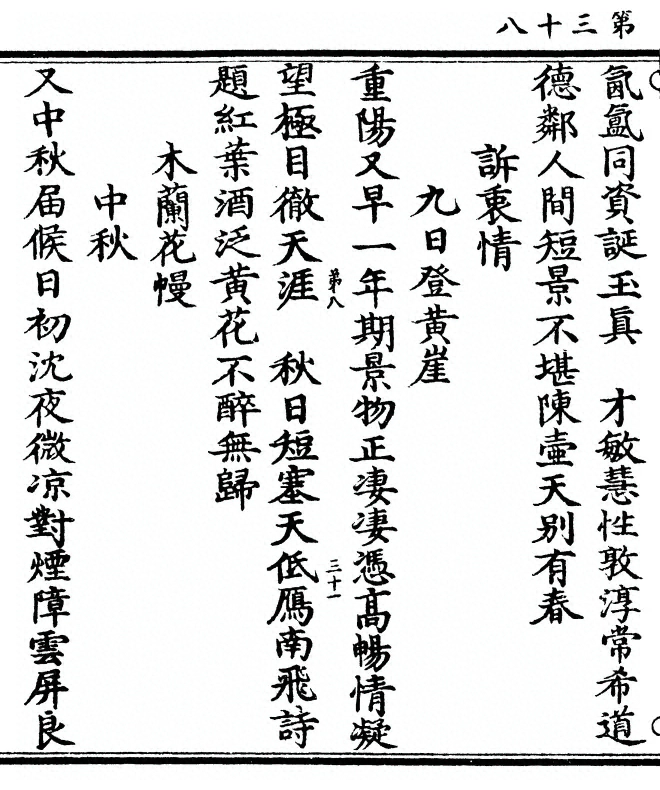 第三十八
氤氳同資誕玉眞　才敏慧性敦淳常希道
德鄰人間短景不堪陳壺天别有春
訴衷情
九日登黄崖
重陽又早一年期景物正凄凄憑髙暢情凝
第八
三十一
望極目徹天涯　秋日短塞天低鴈南飛詩
題紅葉酒泛黄花不醉無歸
木蘭花慢
中秋
又中秋届候日初沈夜微凉對煙障雲屏良